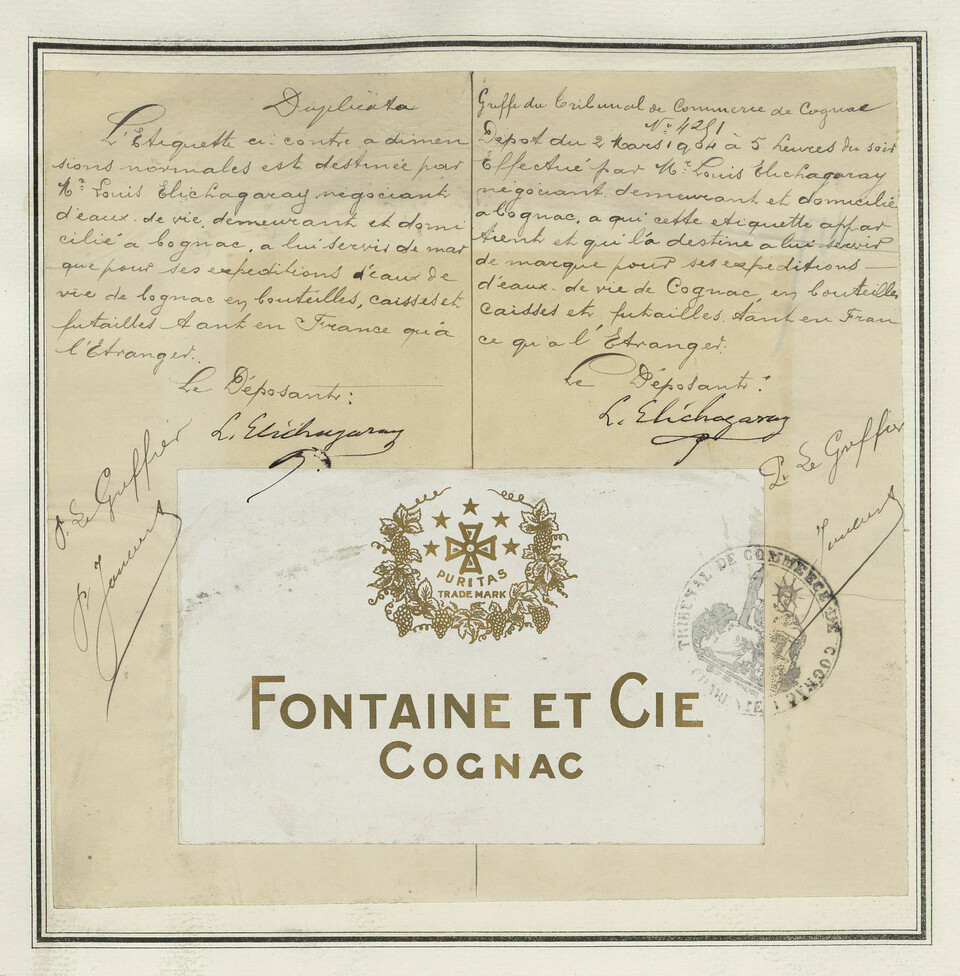 Duplicata
L'Etiquette ci-contre a dimen
sions normales est destinée par
Mr. Louis Elichagaray négociant
d'eaux-de-vie, demeurant et domi
cilié a Cognac, a lui servir de mar
que pour ses expeditions d'eaux de
vie de Cognac en bouteilles, caisses et
futailles tant en France qu'à
l'Etranger.
Le Déposant:
L. Elichagaray
P. Le Greffier
Greffe du Tribunal de Commerce de Cognac
No. 4251
Dépot du 2 Mars 1904 à 5 heures du soir
Effectué par Mr. Louis Elichagaray
négociant demeurant et domicilié
a Cognac, a qui cette etiquette appar
tient et qui l'a destine a lui servir
de marque pour ses expeditions
d'eaux-de-vie de Cognac, en bouteilles
caisses et futailles, tant en Fran
ce qu'a l'Etranger.
Le Déposant:
L. Elichagaray
P. Le Greffier
PURITAS
TRADE MARK
FONTAINE ET CIE
COGNAC
TRIBUNAL DE COMMERCE DE COGNAC